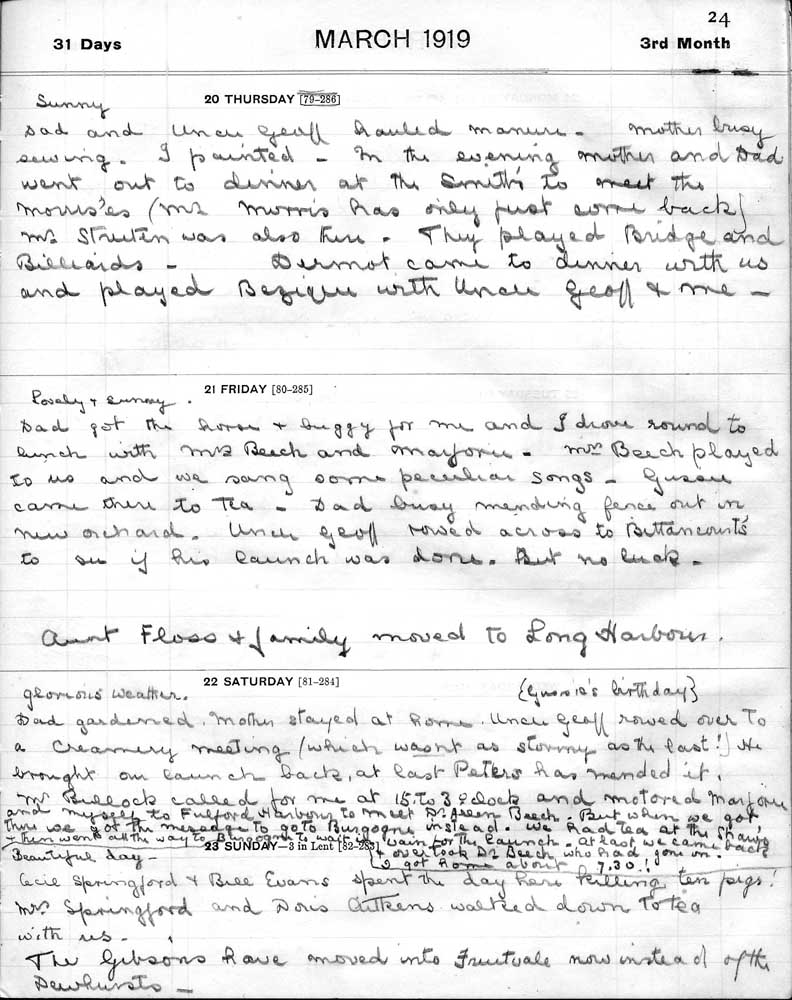 24
31 Days MARCH 1919 3rd Month
20 THURSDAY [79-286]
Sunny
Dad and Uncle Geoff hauled manure - Mother busy
sewing. I painted - In the evening mother and Dad
went out to dinner at the Smith's to meet the
Morris'es (Mrs Morris has only just come back)
Mrs was also there. They played Bridge and
Billiards - Dermot came to dinner with us
and played Bezique with Uncle Geoff & me -
21 FRIDAY [80-285]
Lovely & sunny.
Dad got the horse & buggy for me and I drove round to
lunch with Mrs Beech and Marjorie - Mrs Beech played
to us and we sang some peculiar songs - Gussie
came there to Tea - Dad busy mending fence out in
new orchard. Uncle Geoff rowed across to Bittancourts'
to see if his launch was done. But no luck.
Aunt Floss & family moved to Long Harbour.
22 SATURDAY [81-284]
glorious weather. {Gussie's birthday}
Dad gardened. Mother stayed at home. Uncle Geoff rowed over To
a Creamery meeting (which wasn't as stormy as the last!) He
brought our launch back, at last Peters has mended it.
Mr Bullock called for me at 15 to 3 o'clock and motored Marjorie
and myself to Fulford Harbour to meet Dr Beech. But when we got
there we got the message to go to Burgoyne instead. We had tea at the Shaws
& then went all the way to Burgoyne to wait in vain for the launch. At last we came back
& overtook Dr Beech who had gone on.
I got home about 7.30.!
23 SUNDAY—3 in Lent [82-283]
Beautiful day -
Cecil Springford & Bill Evans spent the day here killing ten pigs!
Mrs Springford and Doris Aitkens walked down to tea
with us.
The Gibsons have moved into Fruitvale now instead of the
Dewhursts -